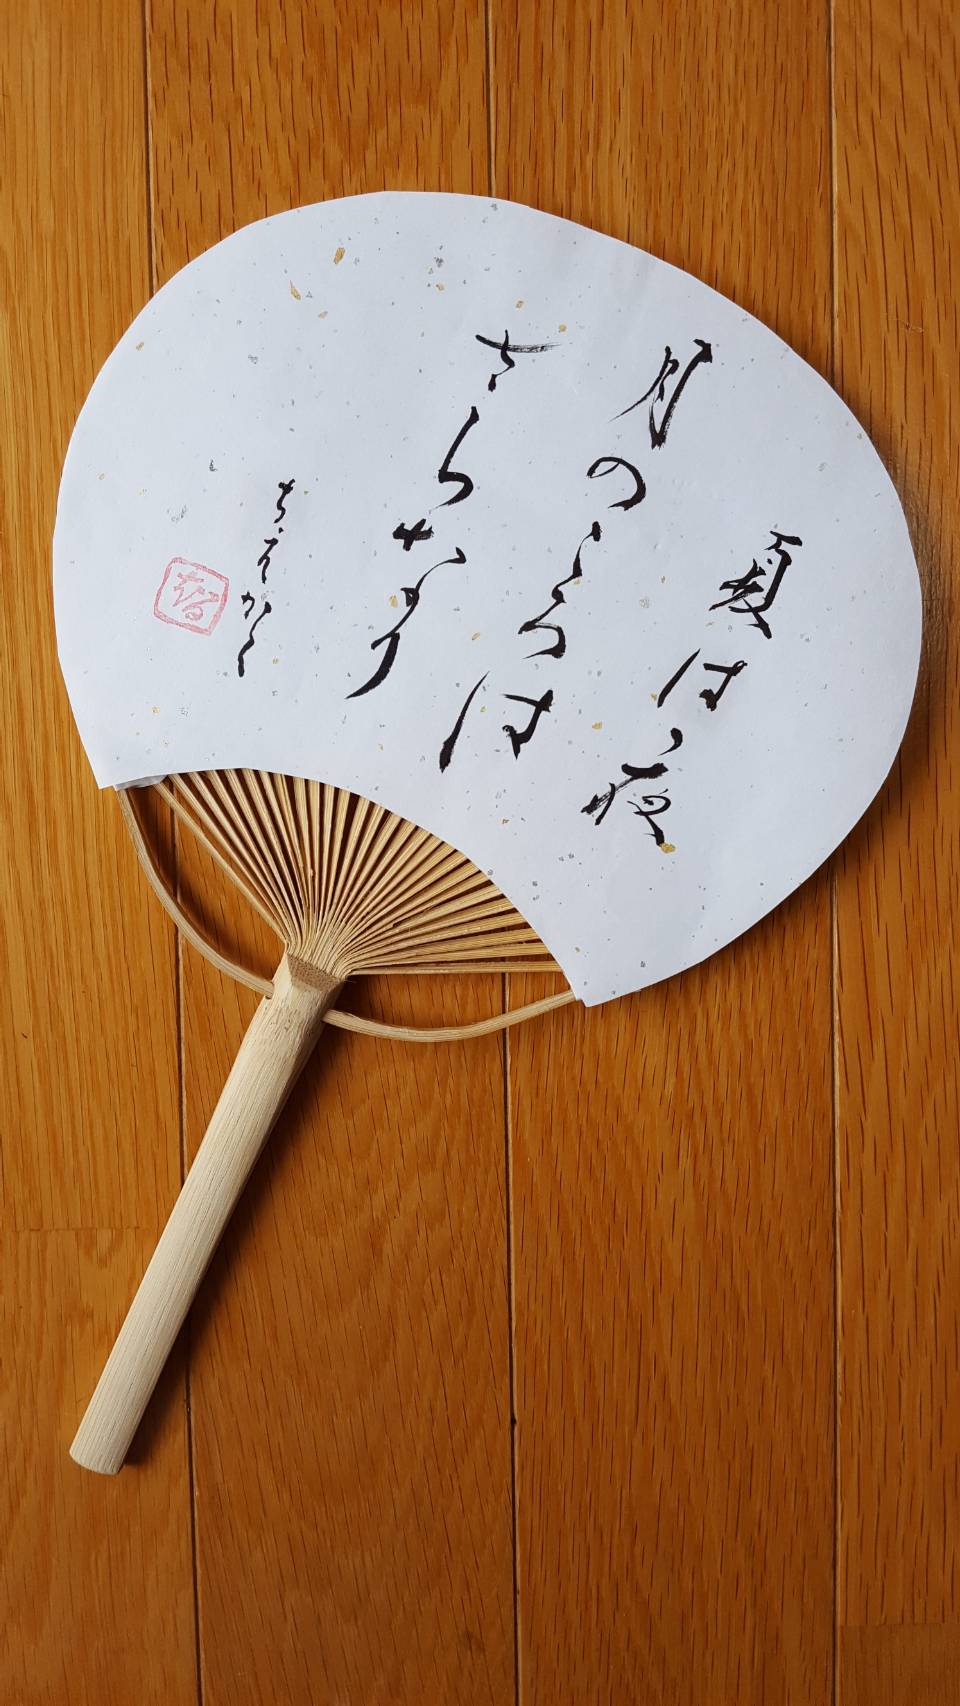 夏は、夜
月のころは
さらなり
ちえかく